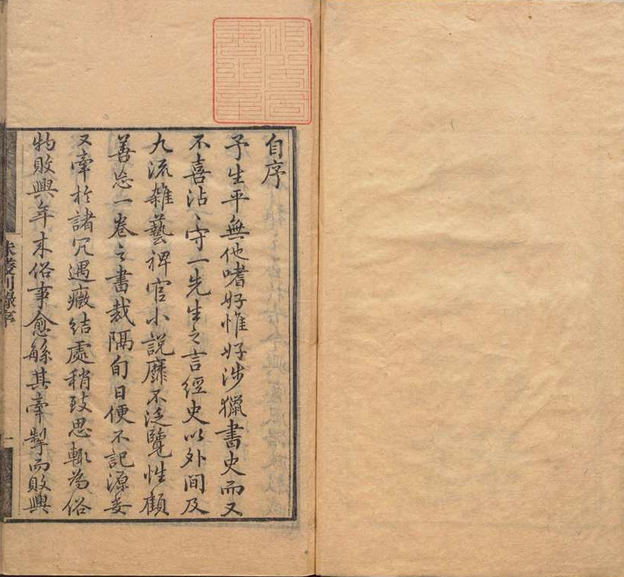 自序
予生平無他嗜好惟好涉獵書史而又
不喜沾〻守一先生之言經史以外間及
九流雜藝稗官小說靡不泛覽性顧
善忘一卷之書裁隔旬日便不記源委
又牽於諸冗遇癥結處稍致思輒為俗
物敗興年來俗事愈緐其牽掣而敗興
序
一